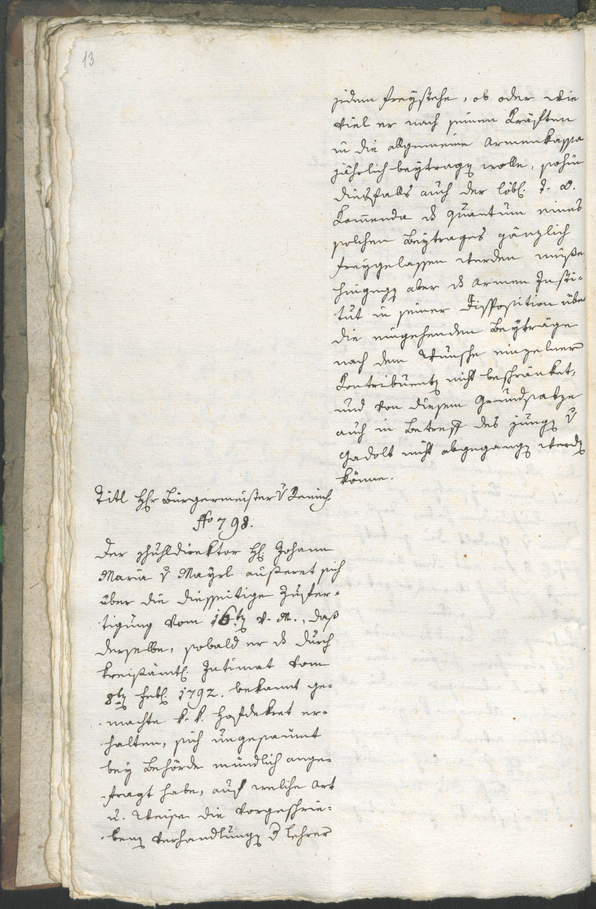 13
jedem freystehe, ob oder wie
viel er nach seinen Kräften
in die allgemeine Armenkassa
jährlich beytragen wolle, sohin
diesfalls auch der löbl. T. O.
Commenda das quantum eines
solchen Beytrages gänzlich
freygelassen werden müsse
hingegen aber das Armen Insti-
tut in seiner Disposition über
die eingehenden Beyträge
nach dem Wunsche einzelner
Contribuenten nicht beschränket,
und von diesem Grundsatze
auch in Betreff des
nicht abgegangen werden
könne.
Titl Hr Bürgermeister v
No 798.
Der Schuldirektor H. Johann
Maria v Mayrl äusseret sich
über die diesseitige Zufer-
tigung vom 16ten v. M., daß
derselbe, sobald er das durch
kreisämtl. Intimat vom
8ten Febr. 1792. bekannt ge-
machte k. k. Hofdekret er-
halten, sich ungesäumt
bey Behörde mündlich ange-
fragt habe, auf welche Art
u. Weise die vorgeschrie-
benen Verhandlungen d Lehrer